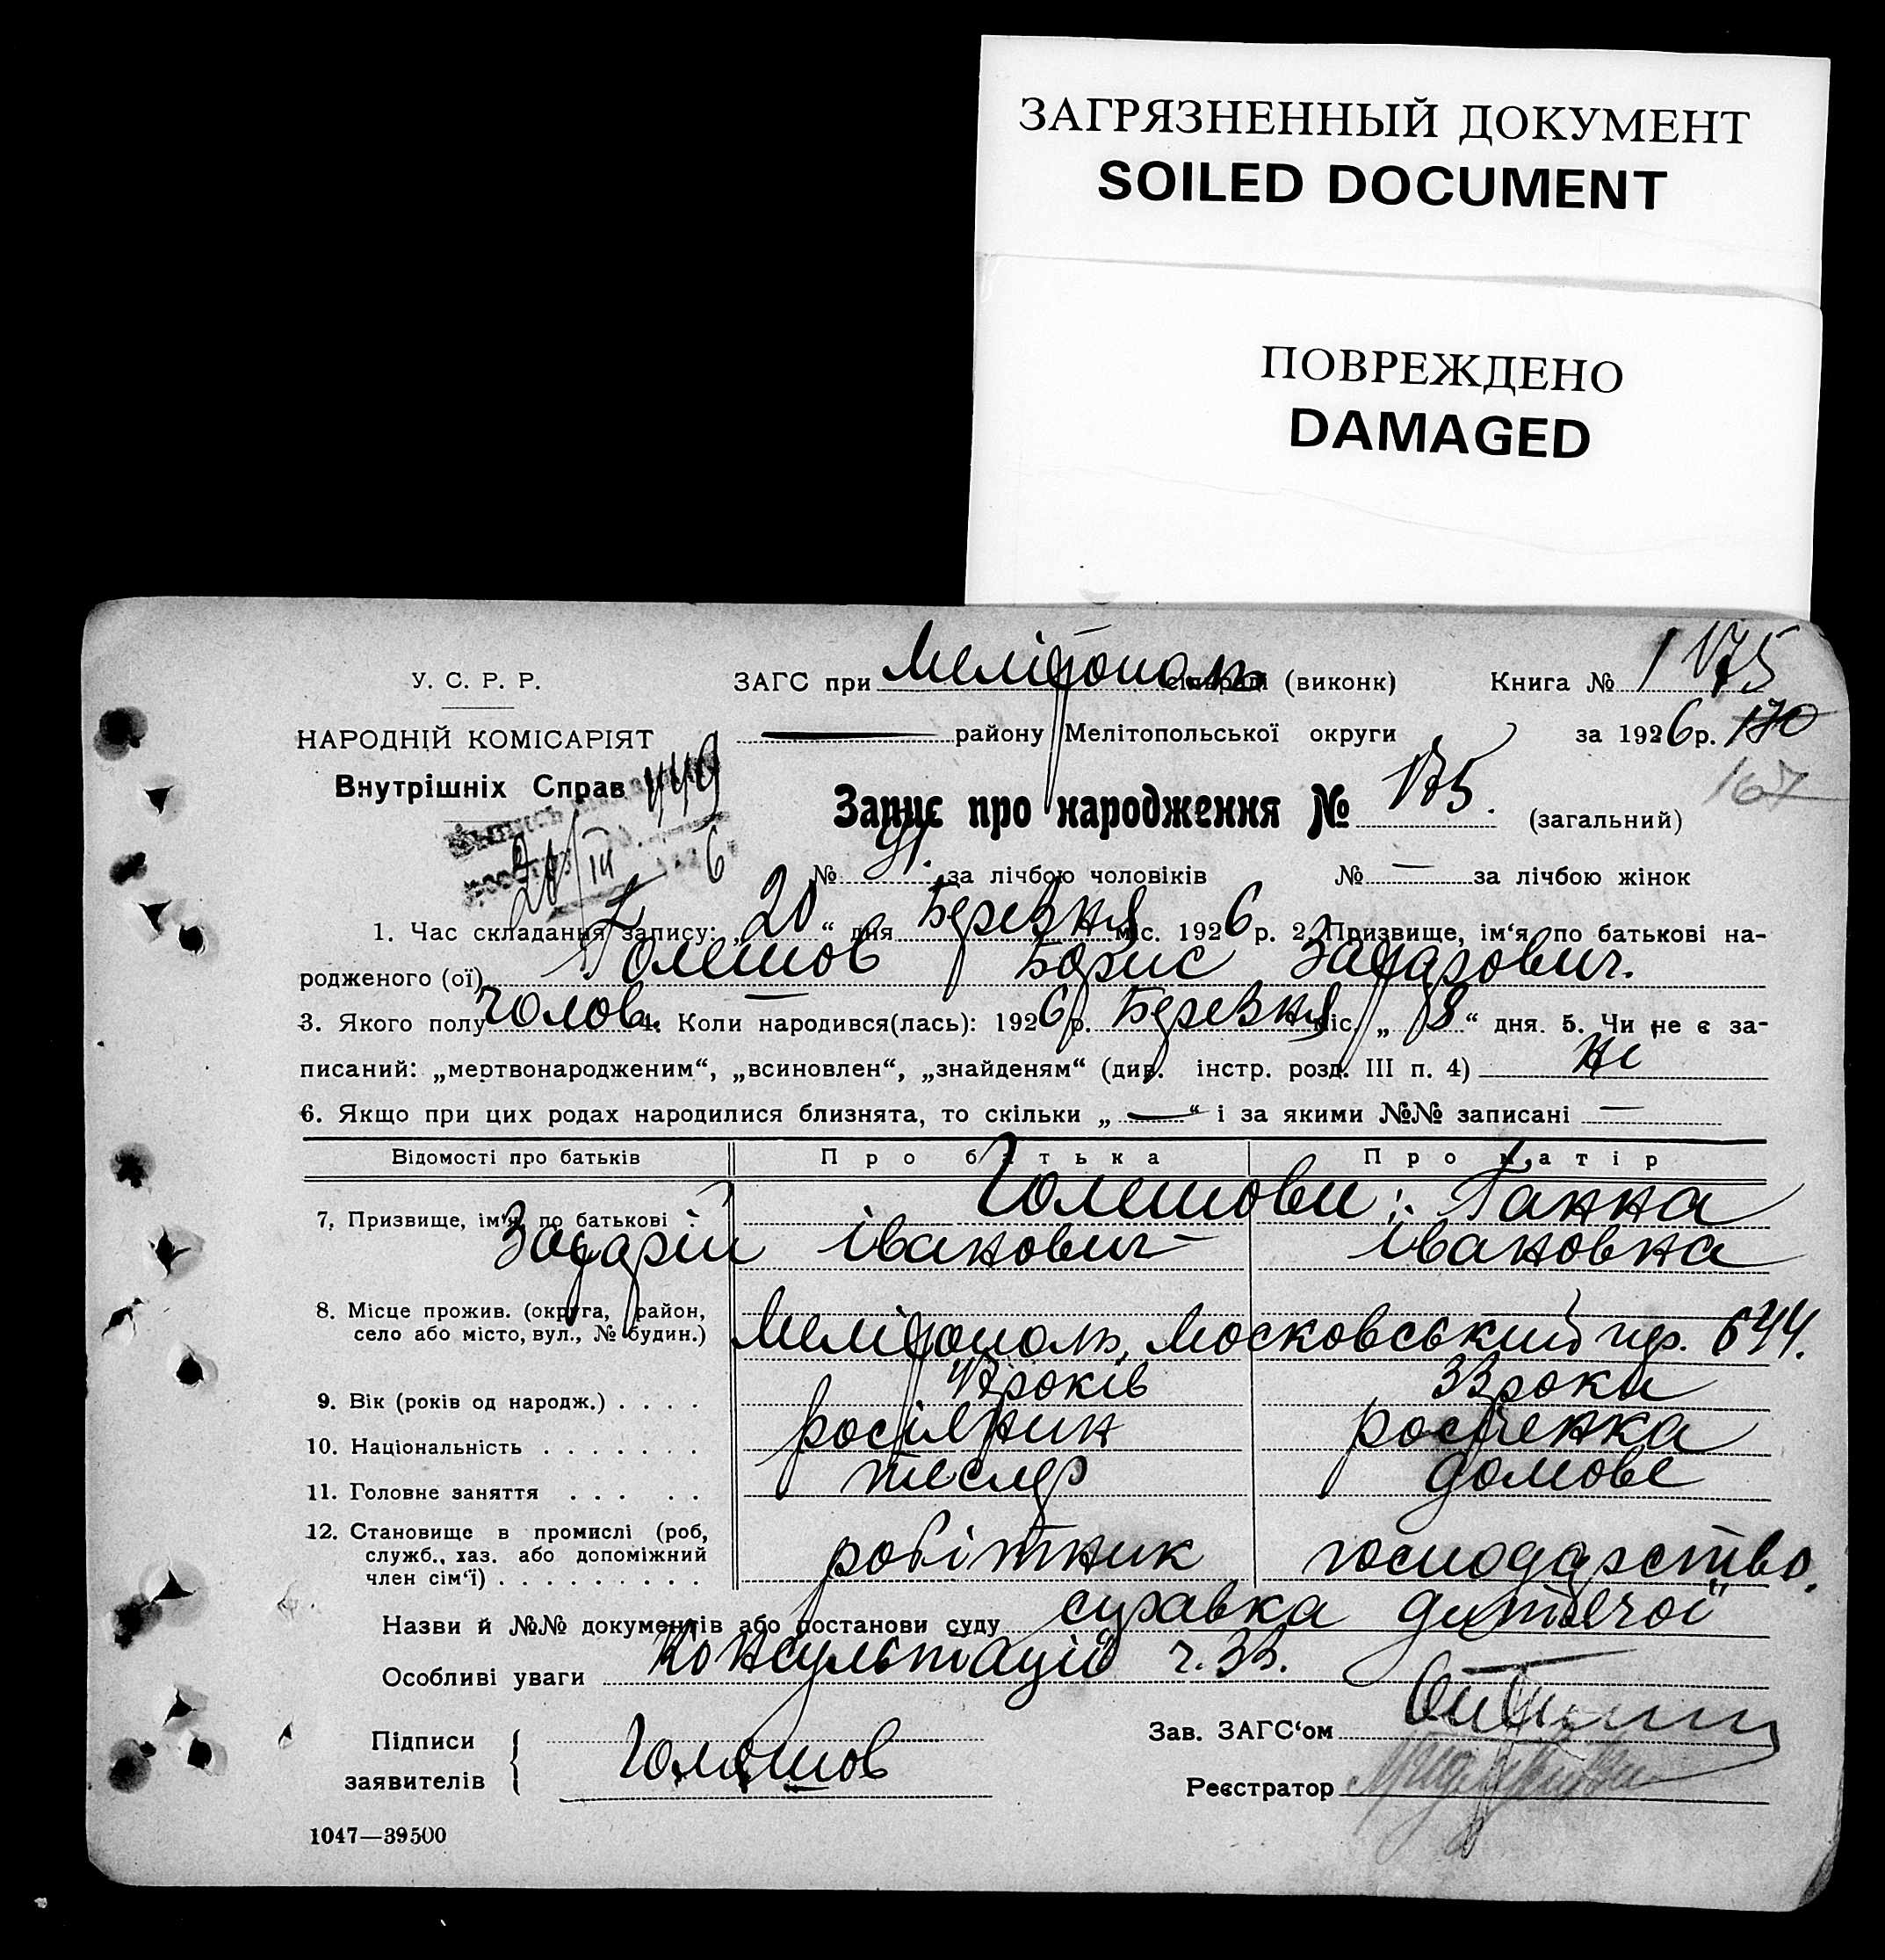 ЗАГРЯЗНЕННЫЙ ДОКУМЕНТ
SOILED DOCUMENT
ПОВРЕЖДЕНО
DAMAGED
У. С. Р. Р.
НАРОДНІЙ КОМІСАРІЯТ
Внутрішніх Справ 449
ЗАГС при Мелітополь (виконк) Книга № 1 175
району Мелітопольської округи за 1926 р. 170
167
Запис про народження № 175. (загальний)
20/III 6
№ 91. за лічбою чоловіків № — за лічбою жінок
1. Час складання запису: „20“ дня Березня міс. 1926 р. 2. Призвище, ім‘я, по батькові на-
родженого (ої) Голешов Борис Захарович.
3. Якого полу чолов. 4. Коли народився(лась): 1926 р. Березня міс. „8“ дня. 5. Чи не є за-
писаний: „мертвонародженим“, „всиновлен“, „знайденям“ (див. інстр. розд. III п. 4) ні
6. Якщо при цих родах народилися близнята, то скільки „—“ і за якими №№ записані —
Відомості про батьків Про батька Про матір
7, Призвище, ім‘я, по батькові : Голешови: Ганна
Захарій Іванович — Івановна
8. Місце прожив. (округа, район,
село або місто, вул., № будин.) Мелітополь, Московський пр.
9. Вік (років од народж.) . . . . років 33 роки
10. Національність . . . . . . .
11. Головне заняття . . . . . тесляр домове
12. Становище в промислі (роб,
служб., хаз. або допоміжний
член сім‘ї) . . . . . . . . . робітник господарство.
Назви й №№ документів або постанови суду справка дитячої
Особливі уваги Консультації ч. 33.
Підписи
заявителів Голешов
Зав. ЗАГС‘ом
Реєстратор
1047—39500